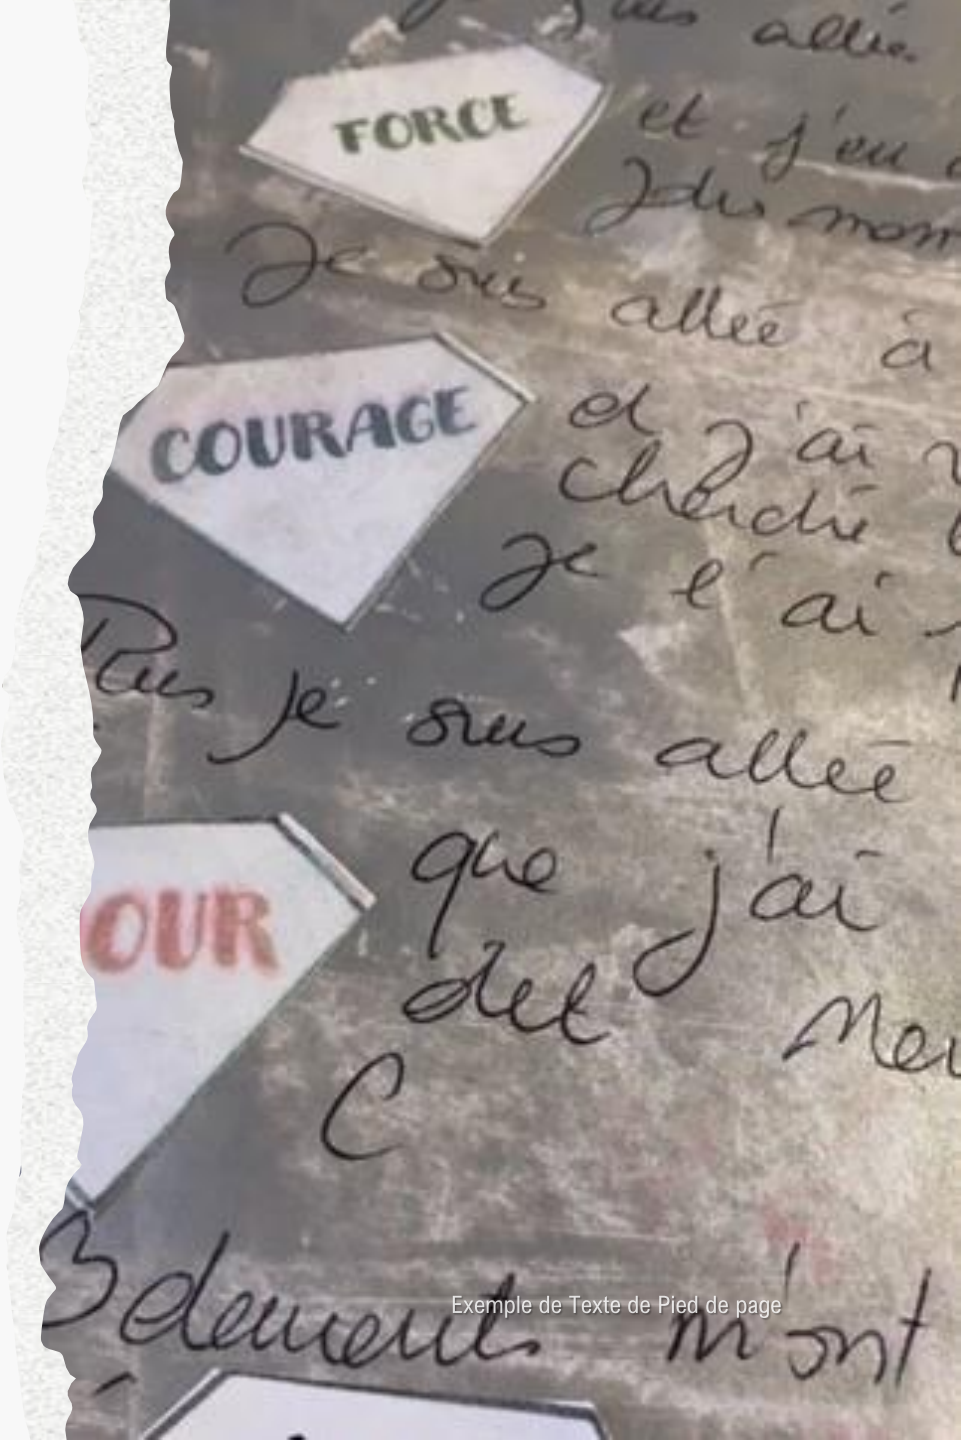 Je suis allée
FORCE
et j'en
des mom
Je suis allée à
COURAGE
et j'ai
cherché
Je l'ai
Puis je suis allée
OUR
que j'ai
det Mer
C
3 éléments m'ont
Exemple de Texte de Pied de page